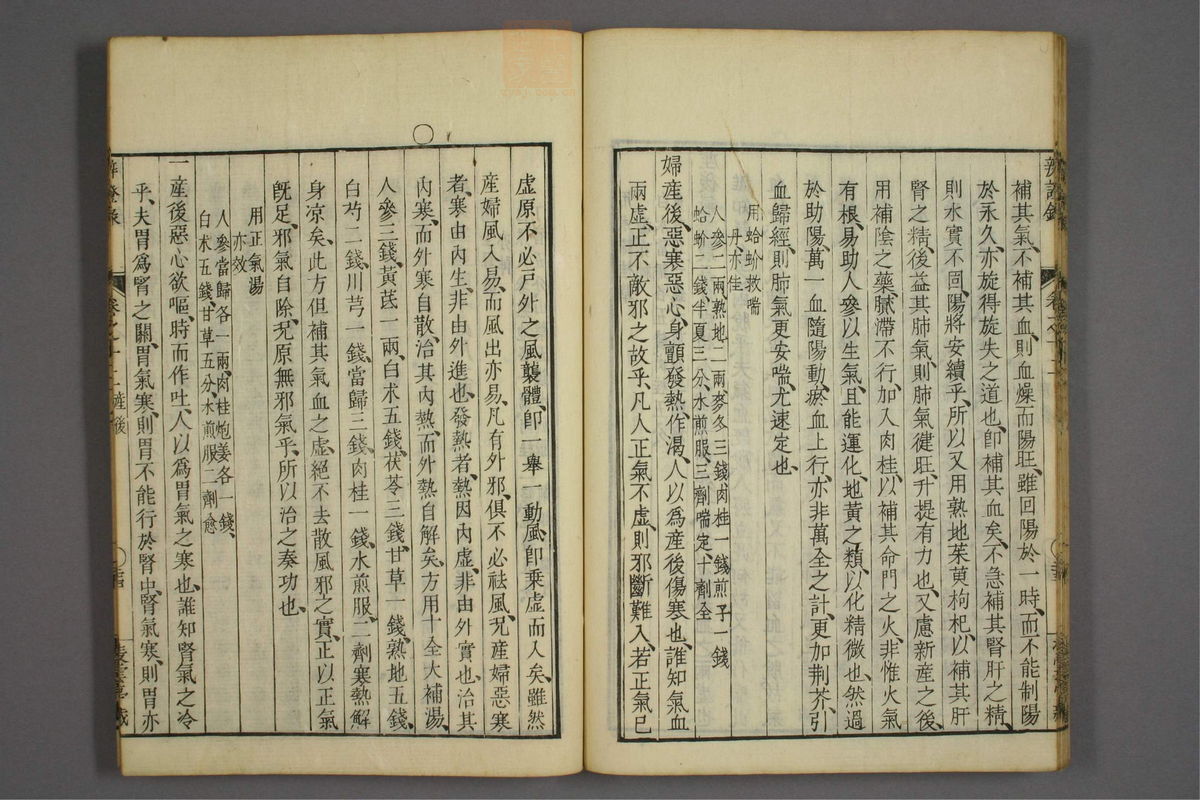 補其氣、不補其血、則血燥而陽旺、雖回陽於一時、而不能制陽
於永久、亦旋得旋失之道也、卽補其血矣、不急補其腎肝之精、
則水實不回、陽將安續乎、所以又用熟地茱萸枸杞、以補其肝
腎之精、後益其肺氣、則肺氣徤旺、升提有力也、又慮新産之後、
用補陰之藥、膩滯不行、加入肉桂、以補其命門之火、非惟火氣
有根、易助人參以生氣、且能運化、地黃之類、以化精微也、然過
於助陽、萬一血隨陽動、瘀血上行、亦非萬全之計、更加荆芥、引
血歸經、則肺氣更安、喘尤速定也、
用蛤蚧救喘
丹、亦佳
人參二兩、熟地二兩、麥冬三錢、肉桂一錢、
蛤蚧二錢、半夏三分、水煎服、三劑喘定、十劑全
婦産後、惡寒惡心、身顫發熱作渴、人以爲産後傷寒也、誰知氣血
兩虛、正不敵邪之故乎、凡人正氣不虛、則邪斷難入、若正氣已
虛、原不必戸外之風襲體、卽一舉一動、風卽乘虛而入矣、雖然
産婦風入易、而風出亦易、凡有外邪、俱不必祛風、况産婦惡寒
者、寒由內生、非由外進也、發熱者、熱因內虛、非由外實也、治其
內寒、而外寒自散、治其內熱、而外熱自解矣、方用十全大補湯、
人參三錢、黃茋一兩、白术五錢、茯苓三錢、甘草一錢、熟地五錢、
白芍二錢、川芎一錢、當歸三錢、肉桂一錢、水煎服、二劑寒熱解
身凉矣、此方但補其氣血之虛、絕不去散風邪之實、正以正氣
旣足、邪氣自除、况原無邪氣乎、所以治之奏功也、
用正氣湯
亦效
人參當歸各一兩、肉桂炮姜各一錢、
白术五錢、甘草五分、水煎服、二劑愈
一産後惡心欲嘔、時而作吐、人以爲胃氣之寒也、誰知腎氣之冷
乎、夫胃爲腎之關、胃氣寒、則胃不能行於腎中、腎氣寒、則胃亦
卷之十二産後